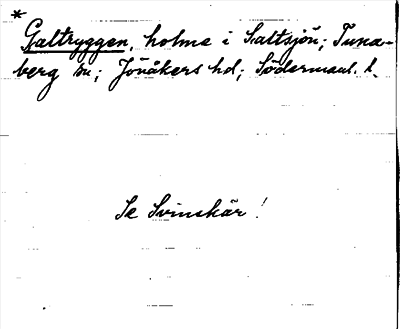 *
Galtryggen, holme i Saltsjön; Tuna-
berg sn; Jönåkers hd; Södermanl. l.
Se Svinskär!